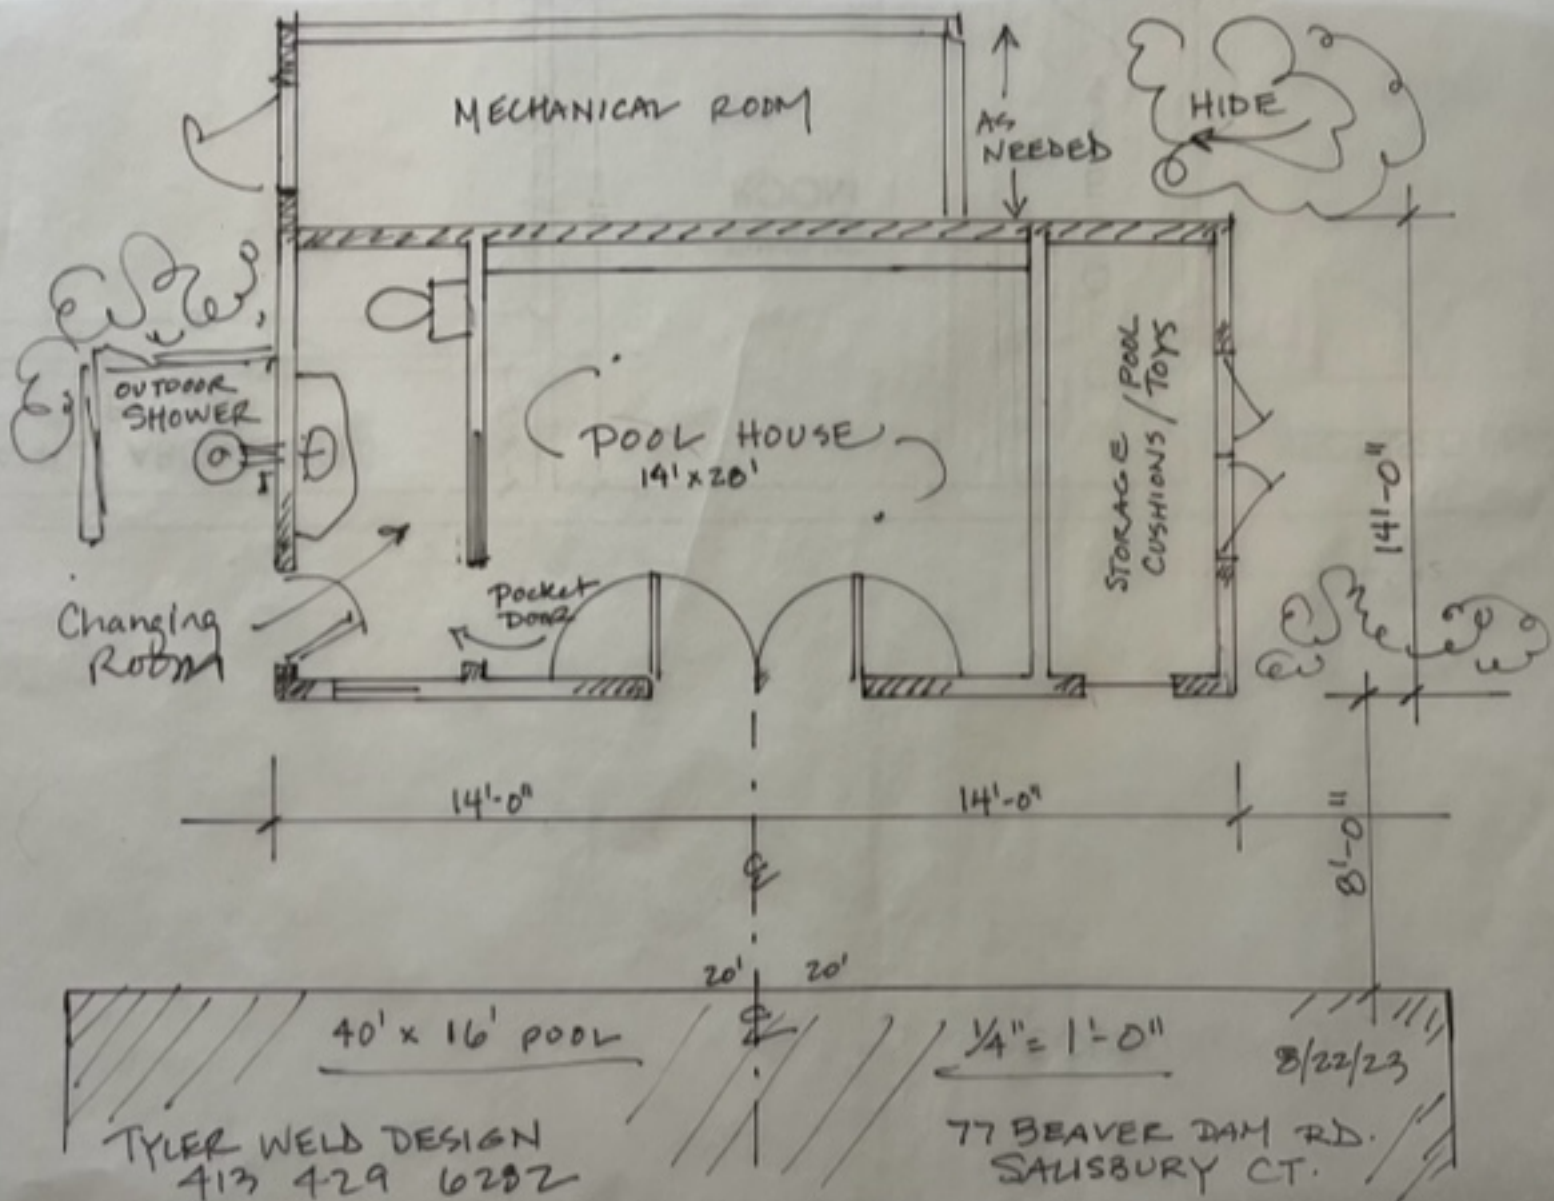 MECHANICAL ROOM
AS
NEEDED
HIDE
OUTDOOR
SHOWER
POOL HOUSE
14' x 28'
STORAGE / POOL
CUSHIONS / TOYS
14'-0"
Changing
Room
Pocket
Door
14'-0"
14'-0"
8'-0"
20' 20'
40' x 16' POOL
1/4" = 1'-0"
8/22/23
TYLER WELD DESIGN
413 429 6282
77 BEAVER DAM RD.
SALISBURY CT.